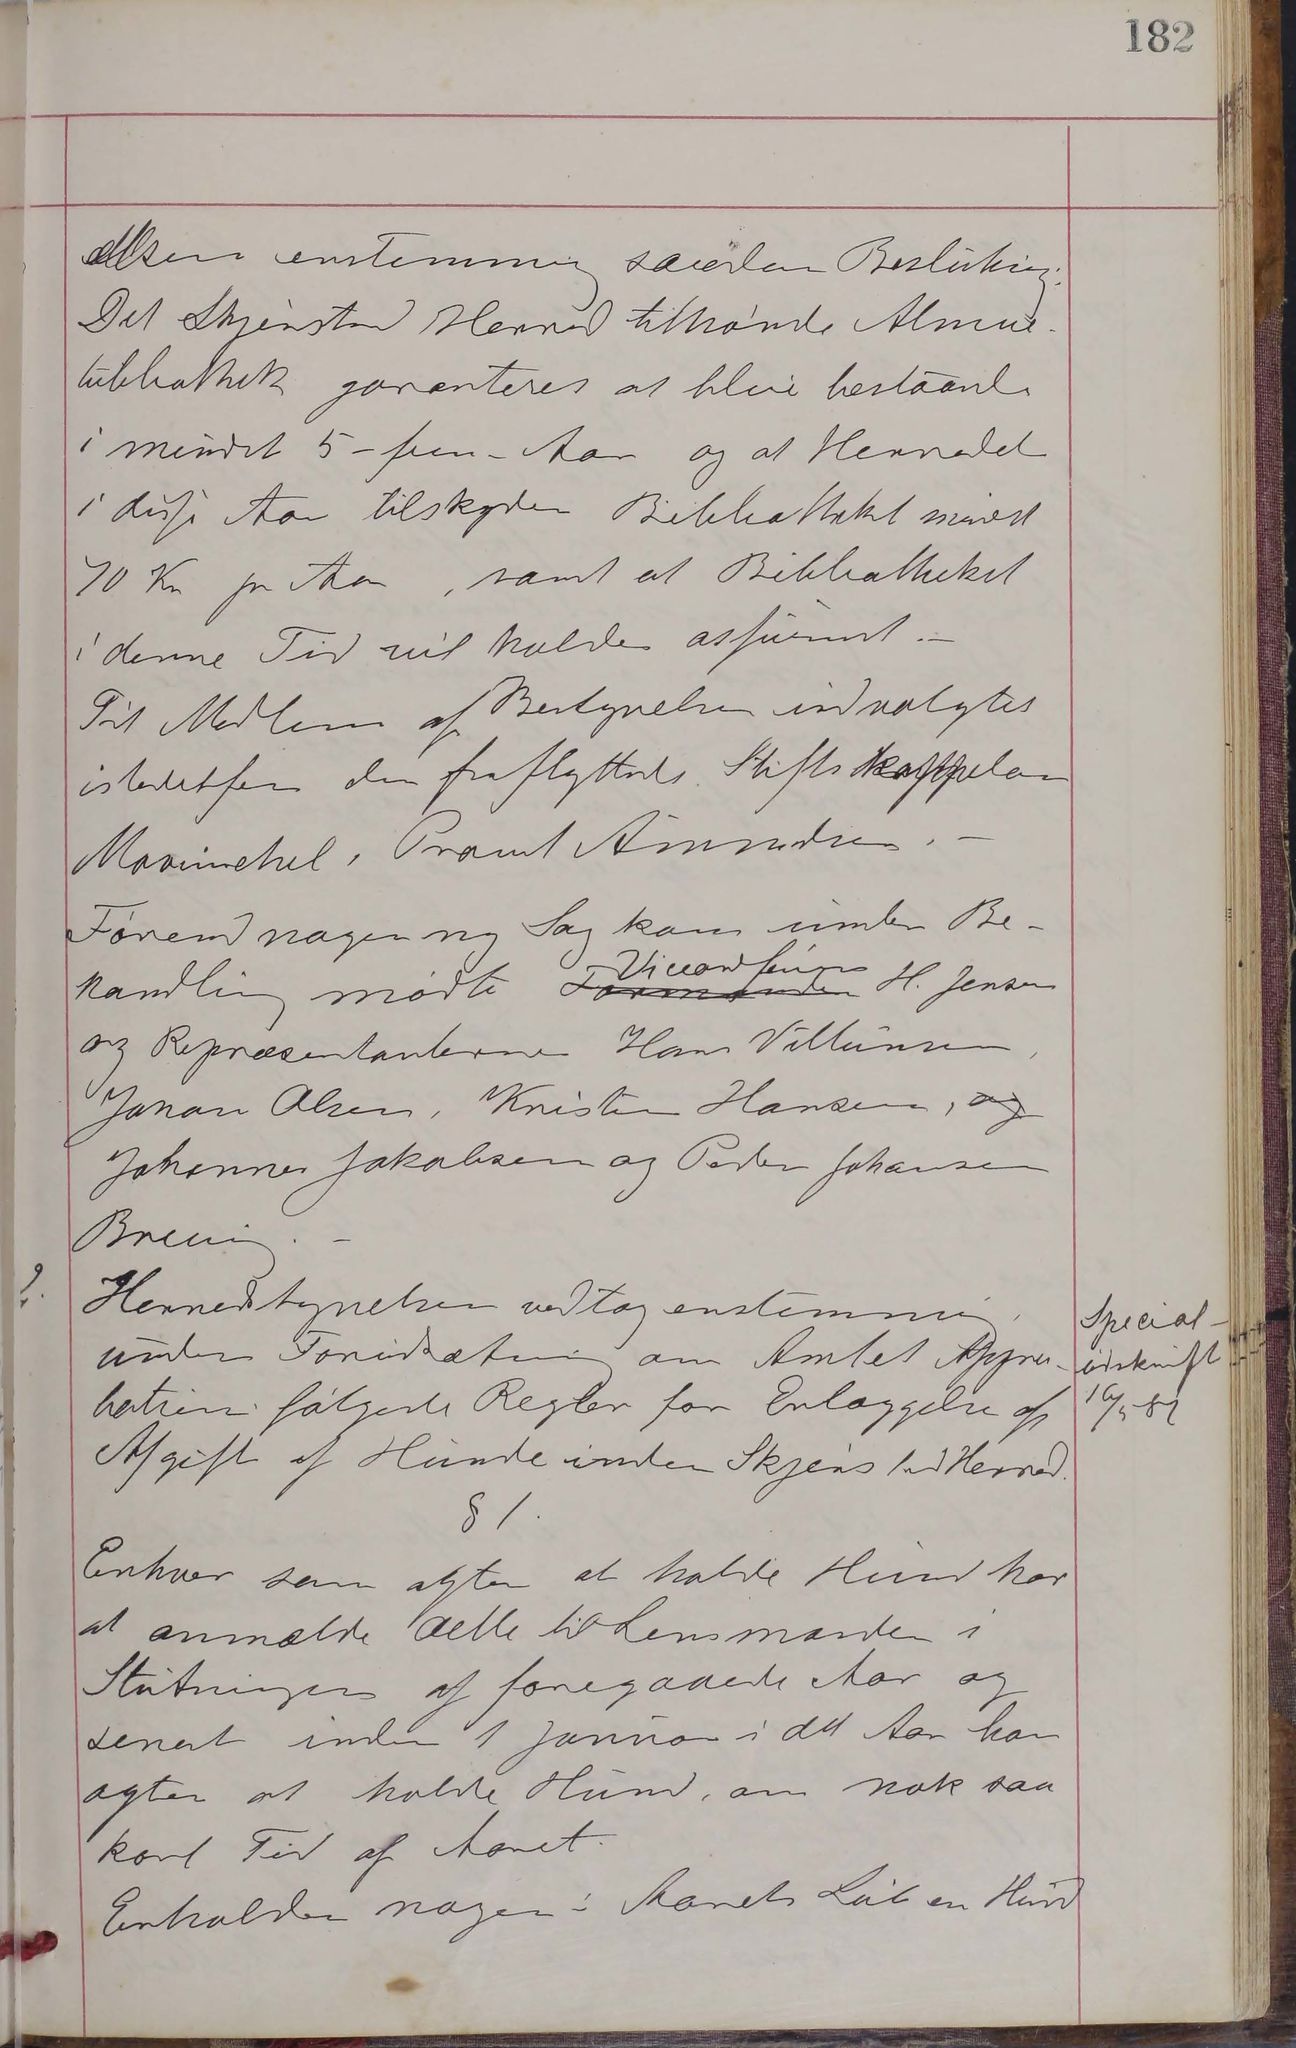 182
elsen enstemmig saadan Beslutning:
Det Skjerstad Herred tilhørende Almue-
bibliothek garanteres at blive bestaaende
i mindst 5-fem-Aar og at Herredet
i disse Aar tilskyder Bibliotheket mindst
70 Kr pr Aar, samt at Bibliotheket
i denne Tid vil holdes assureret.-
Til Medlem af Bestyrelsen indvalgtes
istedetfor den fraflyttede Stiftskappelan
Provst Amundsen.-
Førend nogen ny Sag kom under Be-
Viceordfører
handling mødte Formanden H. Jensen
og Repræsentanterne Hans Villumsen,
Johan Olsen, Kristen Hansen, og
Johannes Jakobsen og Peder Johansen
2.
Herredsstyrelsen vedtog enstemmig,
under Forudsætning om Amtets Appro-
bation følgende Regler for Erlæggelse af
Afgift af Hunde inden Skjerstad Herred.
Special-
udskrift
§ 1.
Enhver som agter at holde Hund har
at anmelde dette til Lensmanden i
Slutningen af foregaaende Aar og
senest inden 1 Januar i det Aar han
agter at holde Hund, om nok saa
kort Tid af Aaret.
Erholder nogen i Aarets Løb en Hund